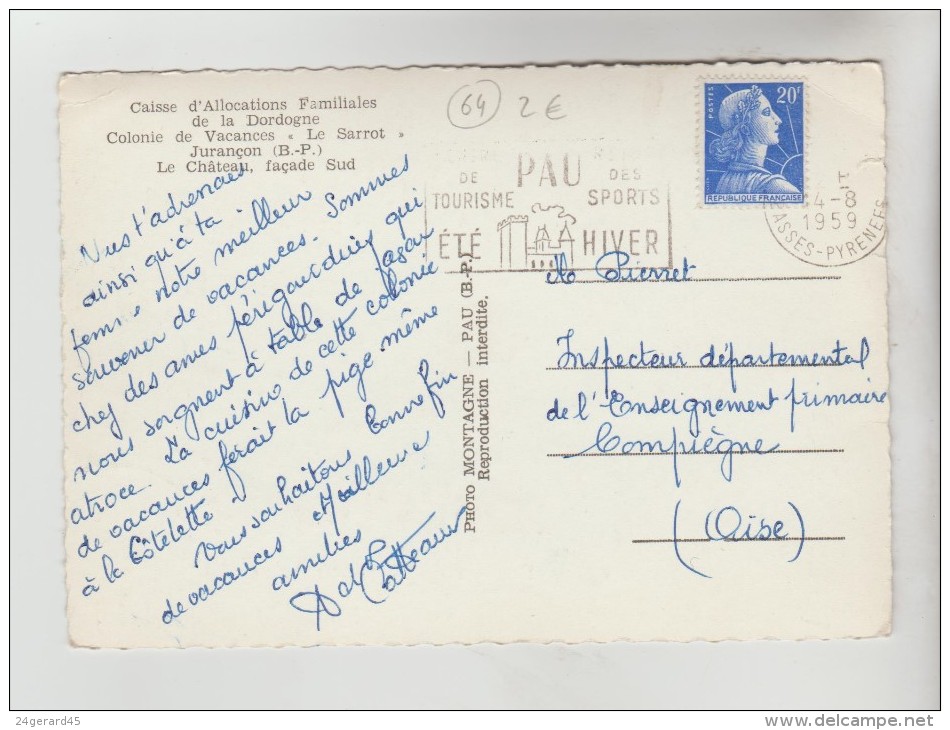 Caisse d'Allocations Familiales
de la Dordogne
Colonie de Vacances « Le Sarrot »
Jurançon (B.-P.)
Le Château, façade Sud
64 2 €
DE PAU DES
TOURISME SPORTS
ÉTÉ HIVER
POSTES 20F
REPUBLIQUE FRANÇAISE
4-8
1959
BASSES-PYRENEES
Nous t'adressons
ainsi qu'à ta
femme notre meilleur
souvenir de vacances. Sommes
chez des amis périgourdins qui
nous soignent à table de façon
atroce. La cuisine de cette colonie
de vacances ferait la pige même
à la Côtelette
Vous souhaitons bonne fin
de vacances Meilleures
amitiés
PHOTO MONTAGNE — PAU (B.-P.)
Reproduction interdite.
Pierret
Inspecteur départemental
de l'Enseignement primaire
Compiègne
(Oise)
24gerard45
www.delcampe.net